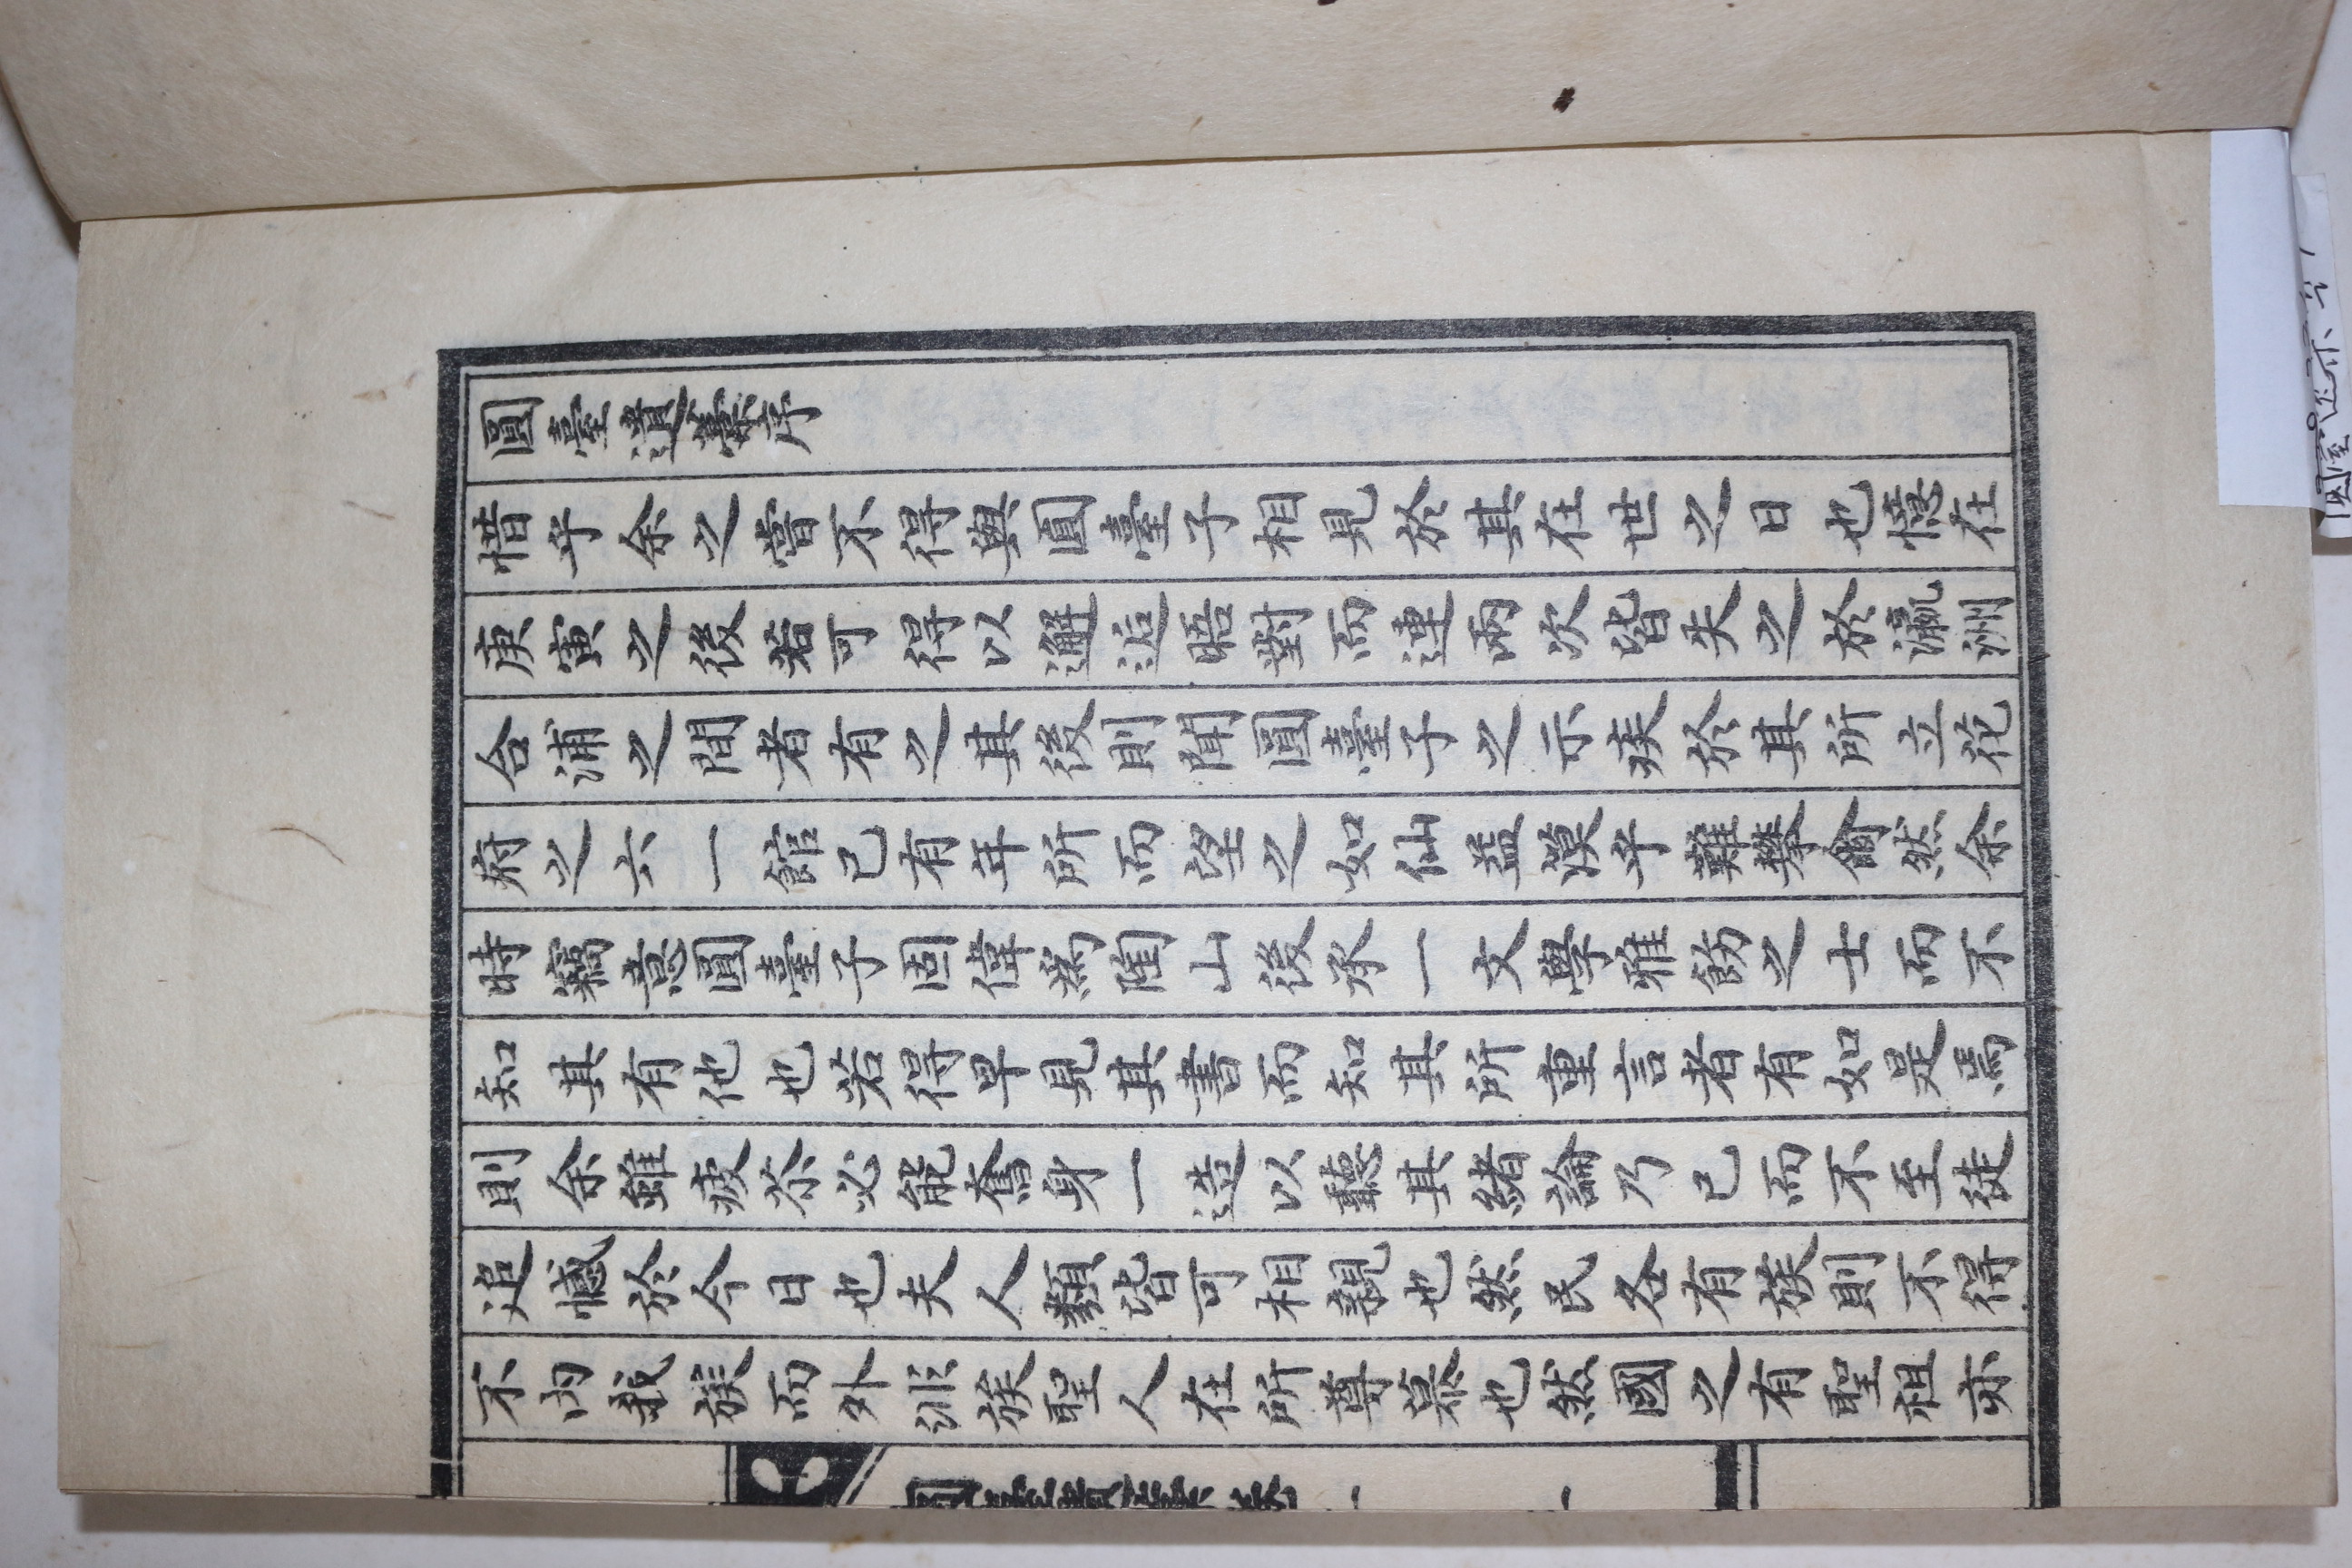 圓臺遺藁序
惜乎余之嘗不得與圓臺子相見於其在世之日也憶在
庚寅之後若可得以邂逅晤對而連兩次皆失之於瀛洲
合浦之間者有之其後則聞圓臺子之示疾於其所立花
府之六一館已有年所而望之如仙益漠乎難攀矣然余
時竊意圓臺子固偉爲陶山後承一文學雅飭之士而不
知其有他也若得早見其書而知其所重言者有如是焉
則余雖疲苶必能奮身一造以聽其緒論乃已而不至徒
追憾於今日也夫人類皆可相親也然民各有族則不得
不內我族而外非族聖人在所尊慕也然國之有聖祖亦